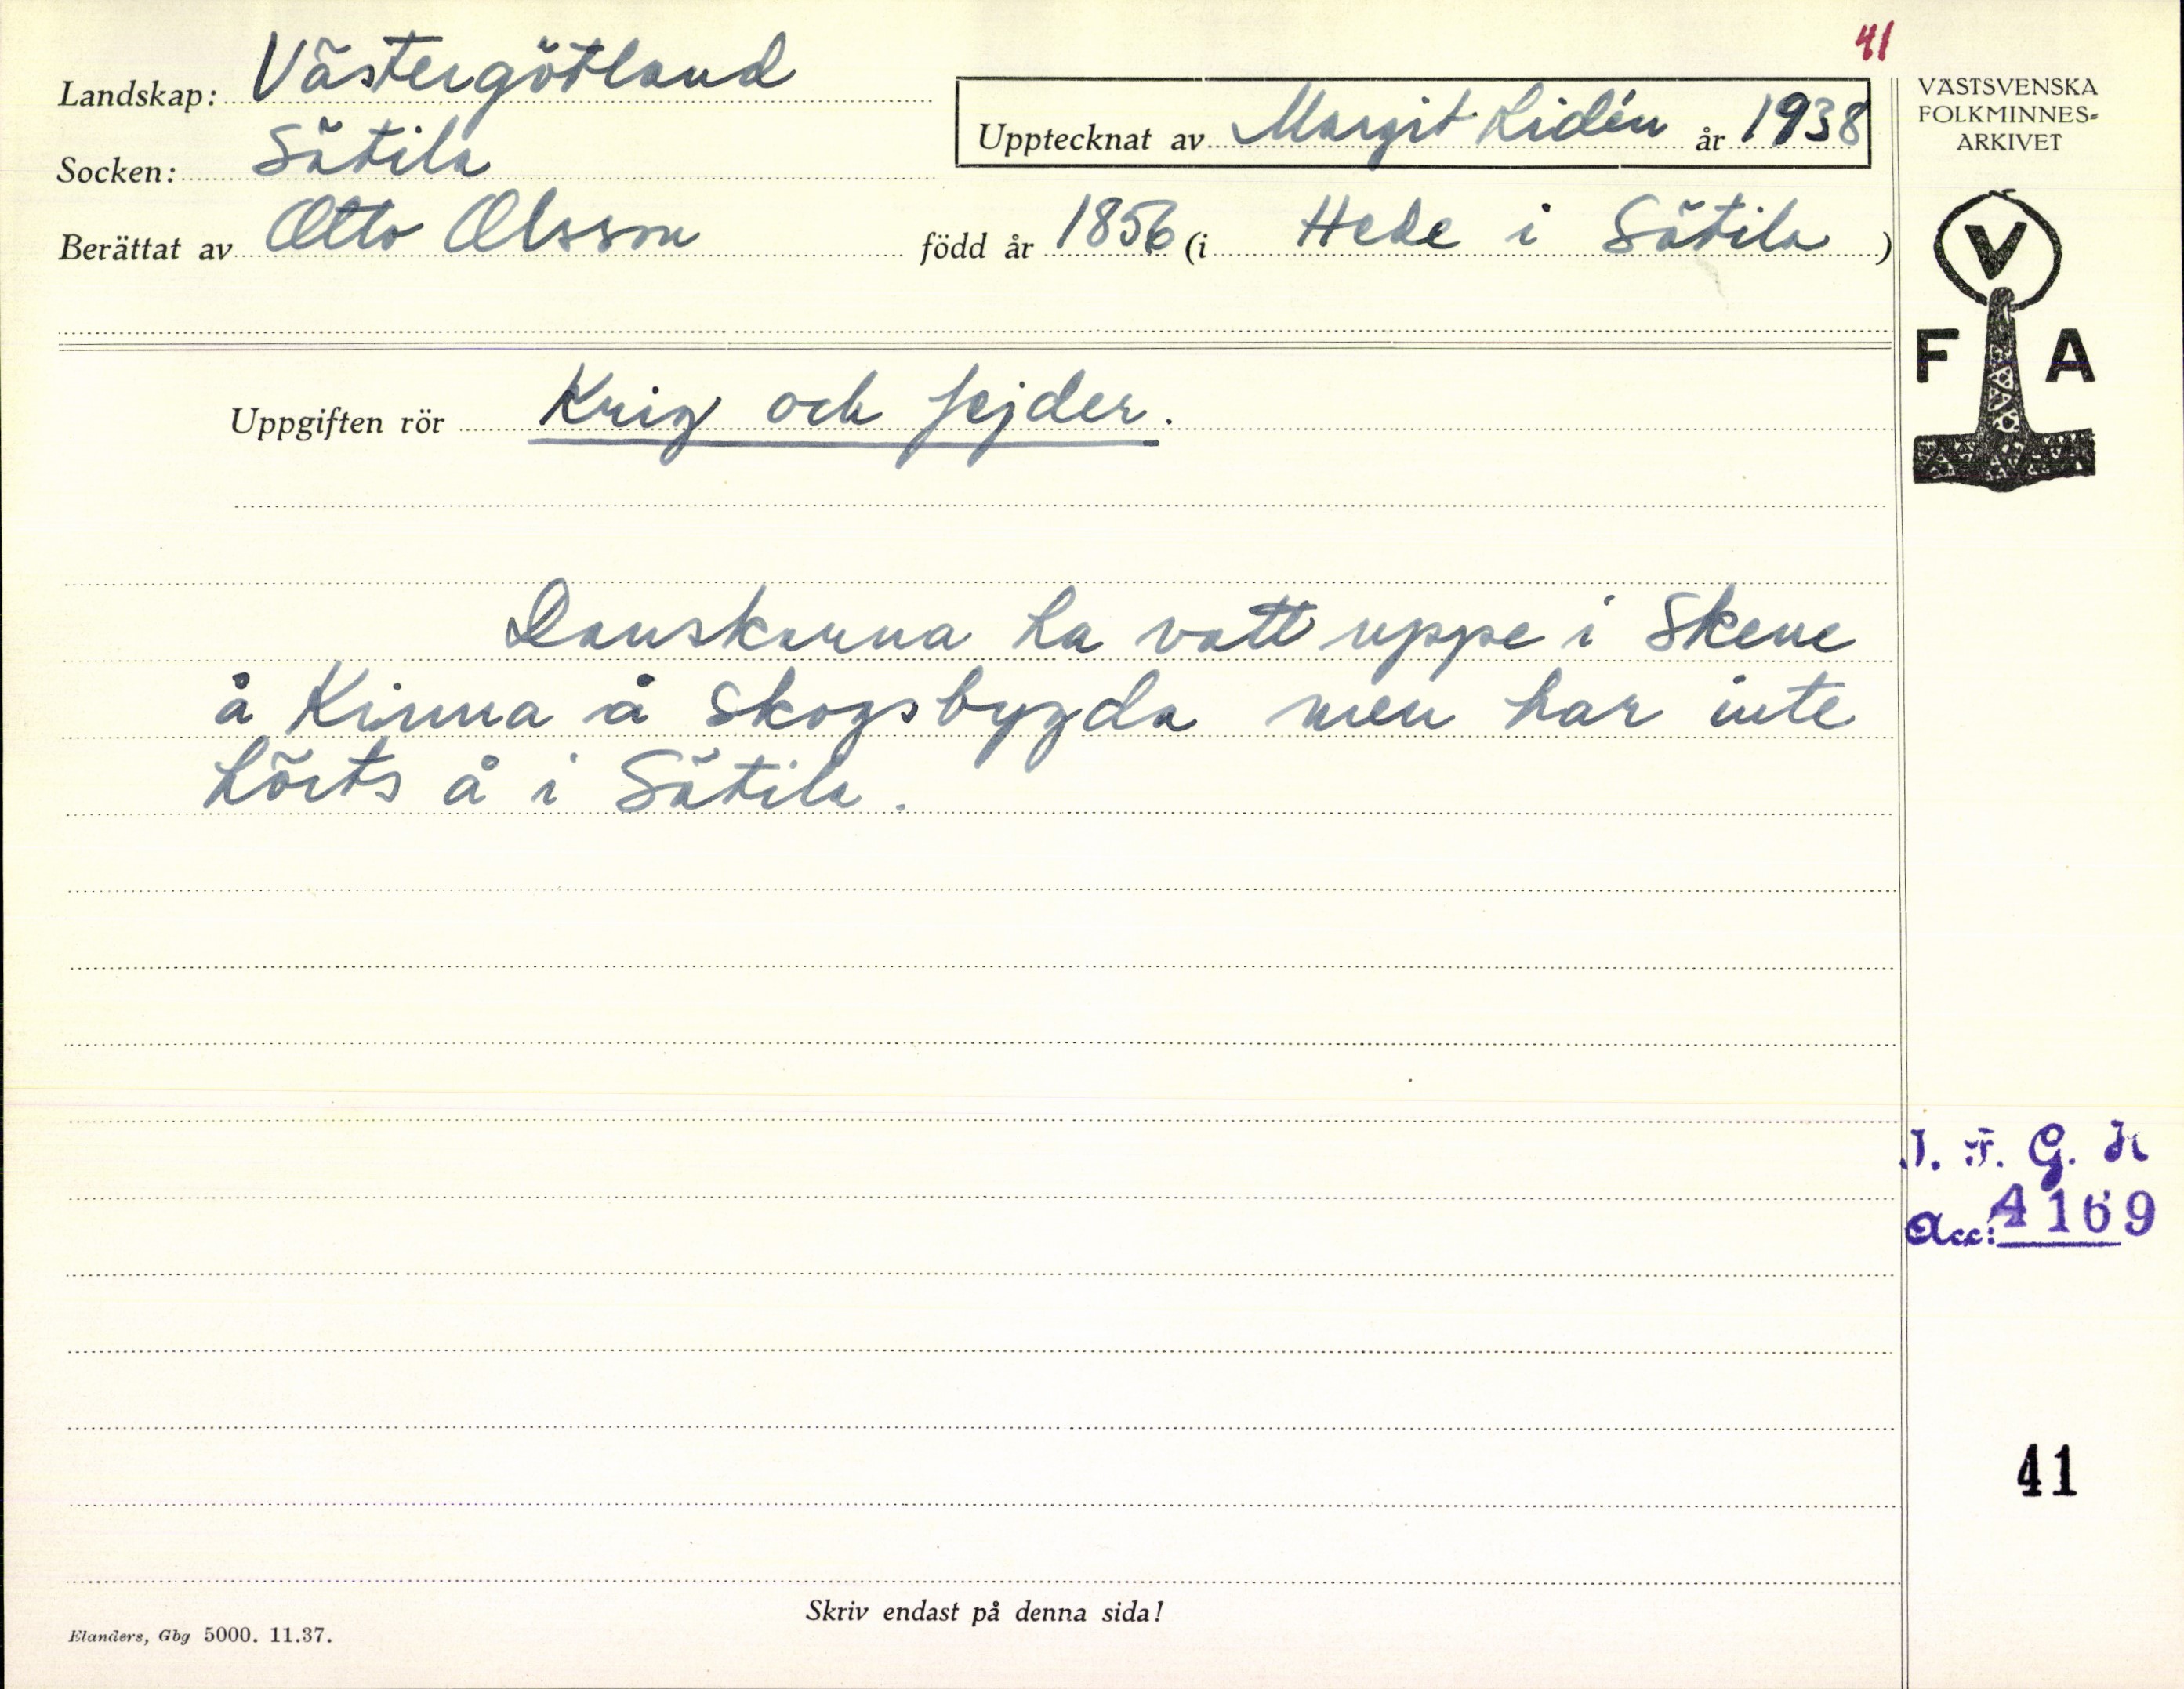 41
Landskap: Västergötland
Socken: Sätila
Upptecknat av Margit Lidén år 1938
Berättat av Otto Olsson född år 1856 (i Hede i Sätila)
VÄSTSVENSKA
FOLKMINNES-
ARKIVET
V
F A
Uppgiften rör Krig och fejder.
Danskarna ha vatt uppe i Skene
å Kinna å Skogsbygda men har inte
hörts å i Sätila.
I. F. G. H
Acc: 4169
41
Skriv endast på denna sida!
Elanders, Gbg 5000. 11.37.